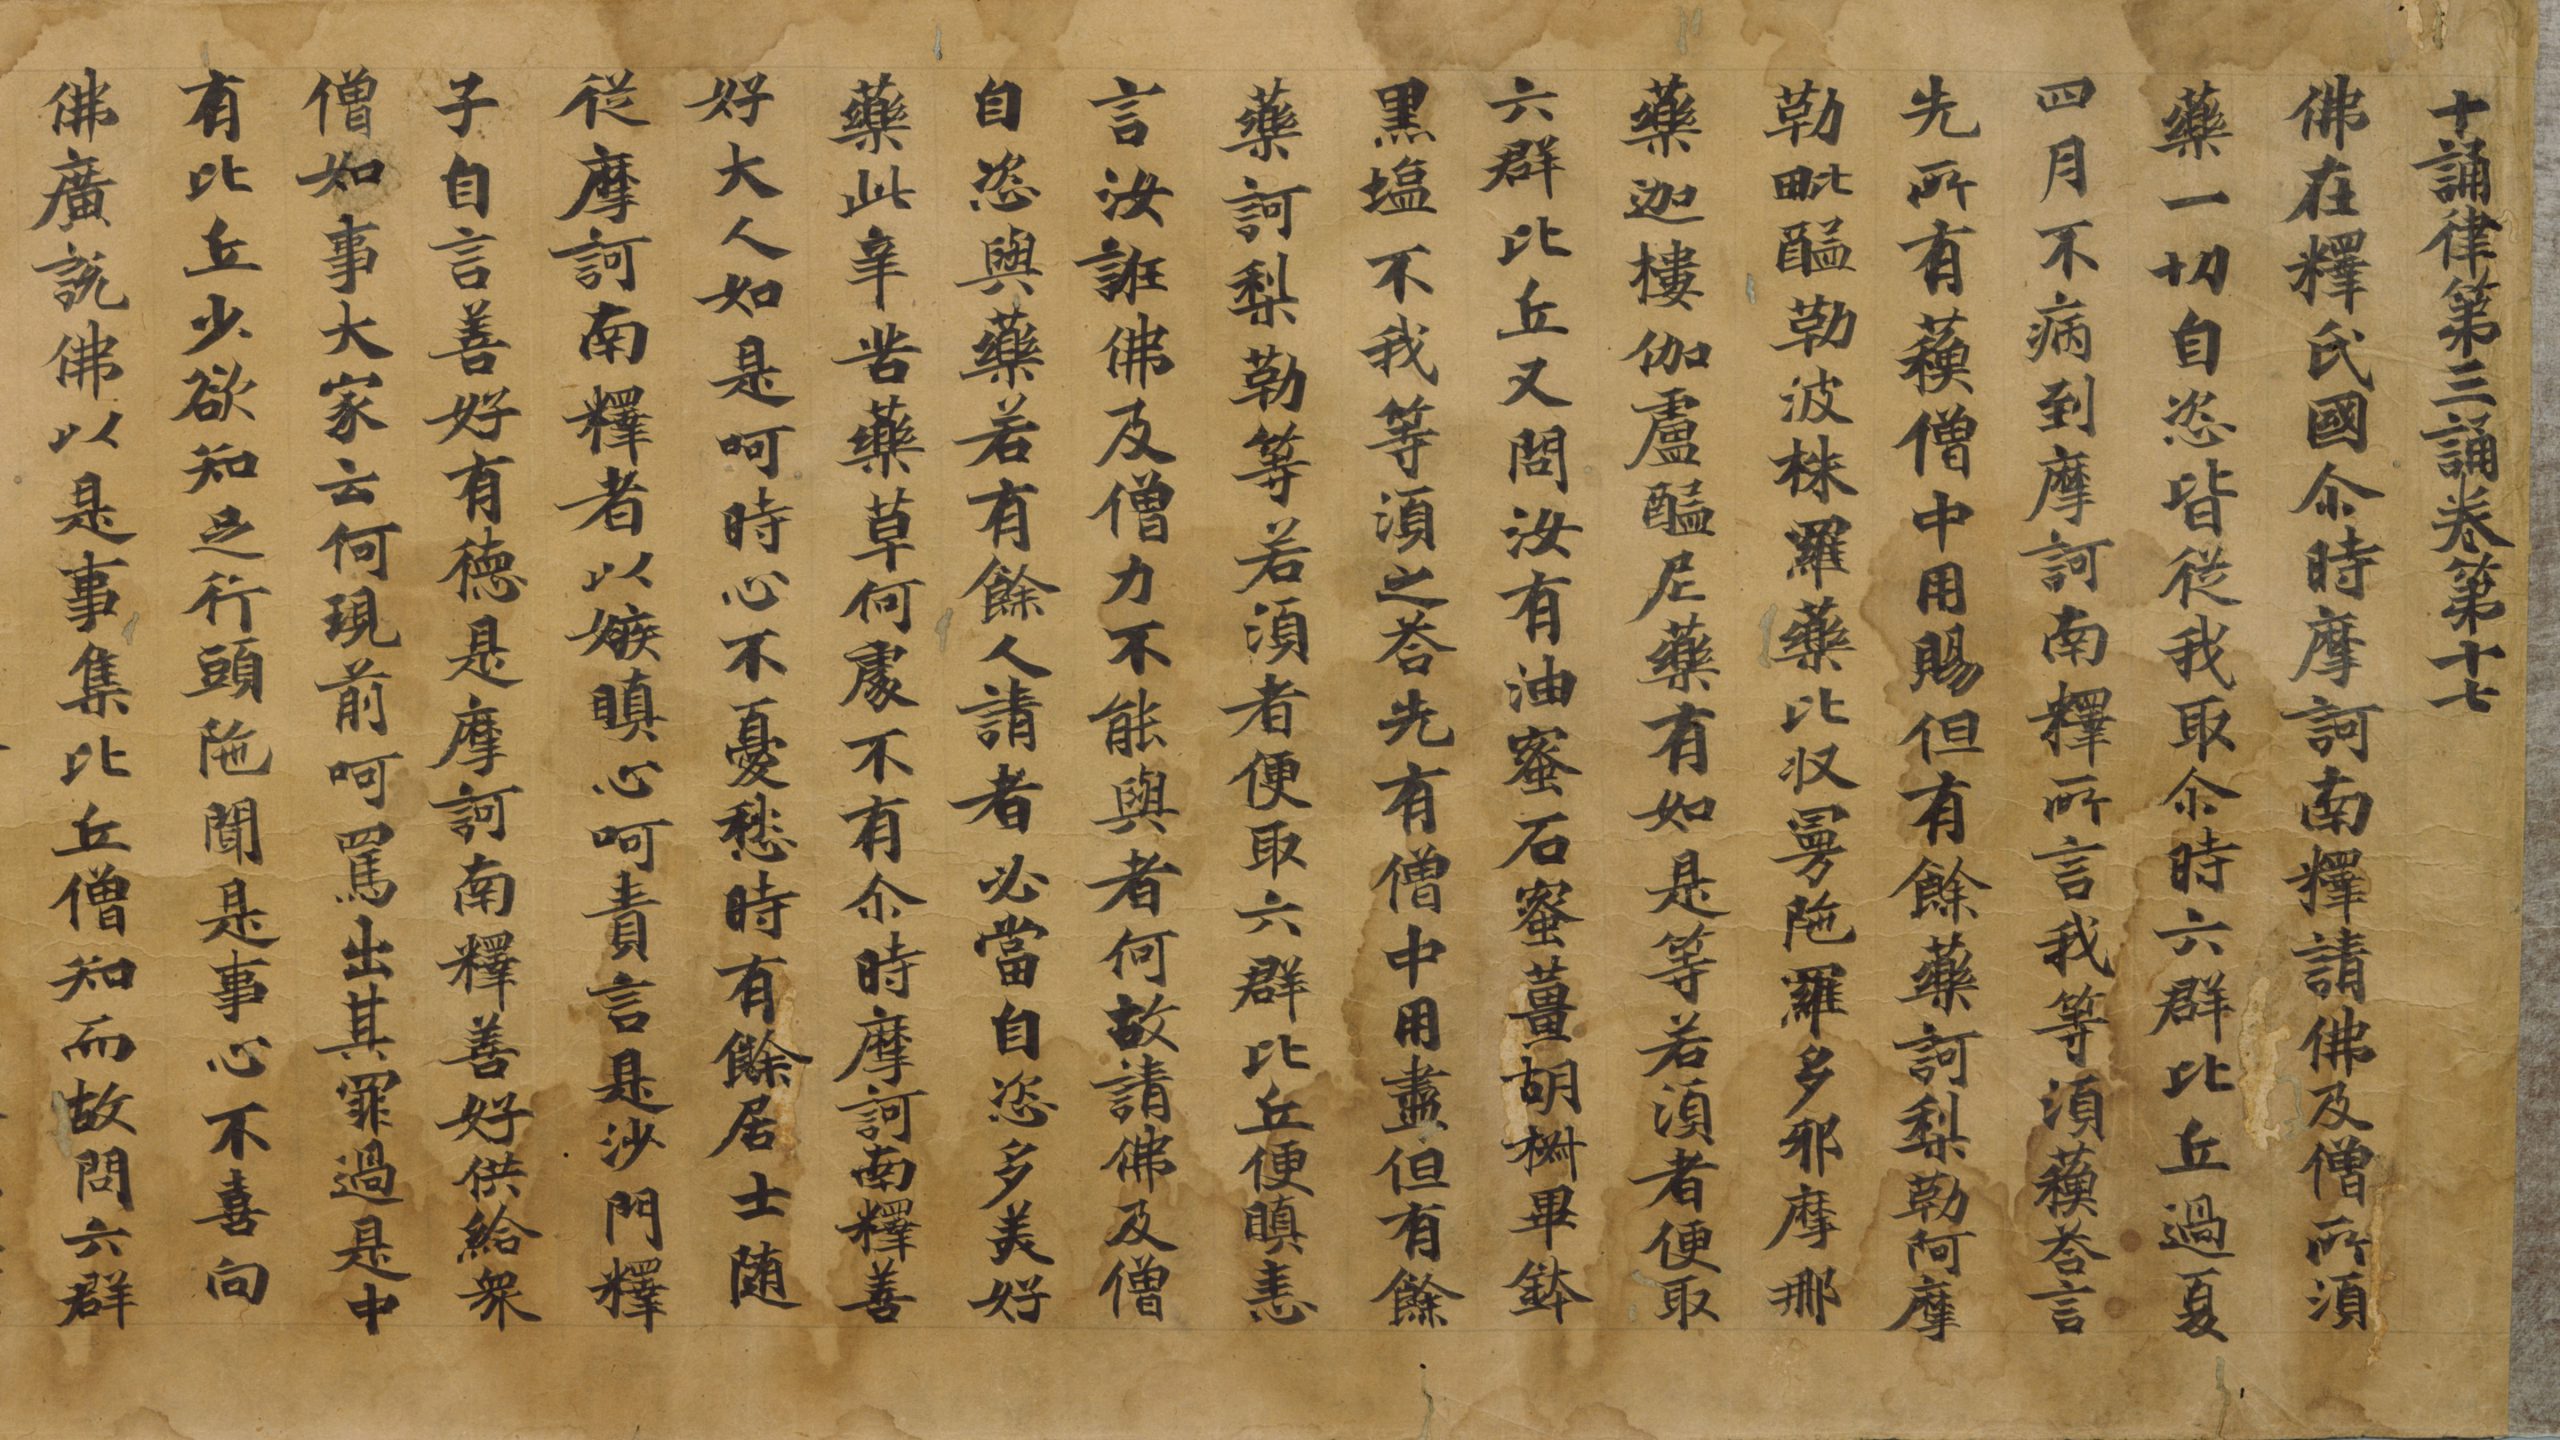 十誦律第三誦卷第十七
佛在釋氏國尒時摩訶南釋請佛及僧所湏
藥一切自恣皆從我取尒時六群比丘過夏
四月不病到摩訶南釋所言我等湏蘓荅言
先所有蘓僧中用賜但有餘藥訶梨勒阿摩
勒毗醯勒波株羅藥比収㝱陁羅多邪摩那
藥迦樓伽盧醯尼藥有如是等若湏者便取
六群比丘又問汝有油蜜石蜜薑胡椒畢鉢
黒塩不我等湏之荅先有僧中用盡但有餘
藥訶梨勒等若湏者便取六群比丘便瞋恚
言汝誑佛及僧力不能與者何故請佛及僧
自恣與藥若有餘人請者必當自恣多美好
藥此辛苦藥草何處不有尒時摩訶南釋善
好大人如是呵時心不憂愁時有餘居士随
從摩訶南釋者以嫉瞋心呵責言是沙門釋
子自言善好有德是摩訶南釋善好供給衆
僧如事大家云何現前呵罵出其罪過是中
有比丘少欲知足行頭陁聞是事心不喜向
佛廣說佛以是事集比丘僧知而故問六群